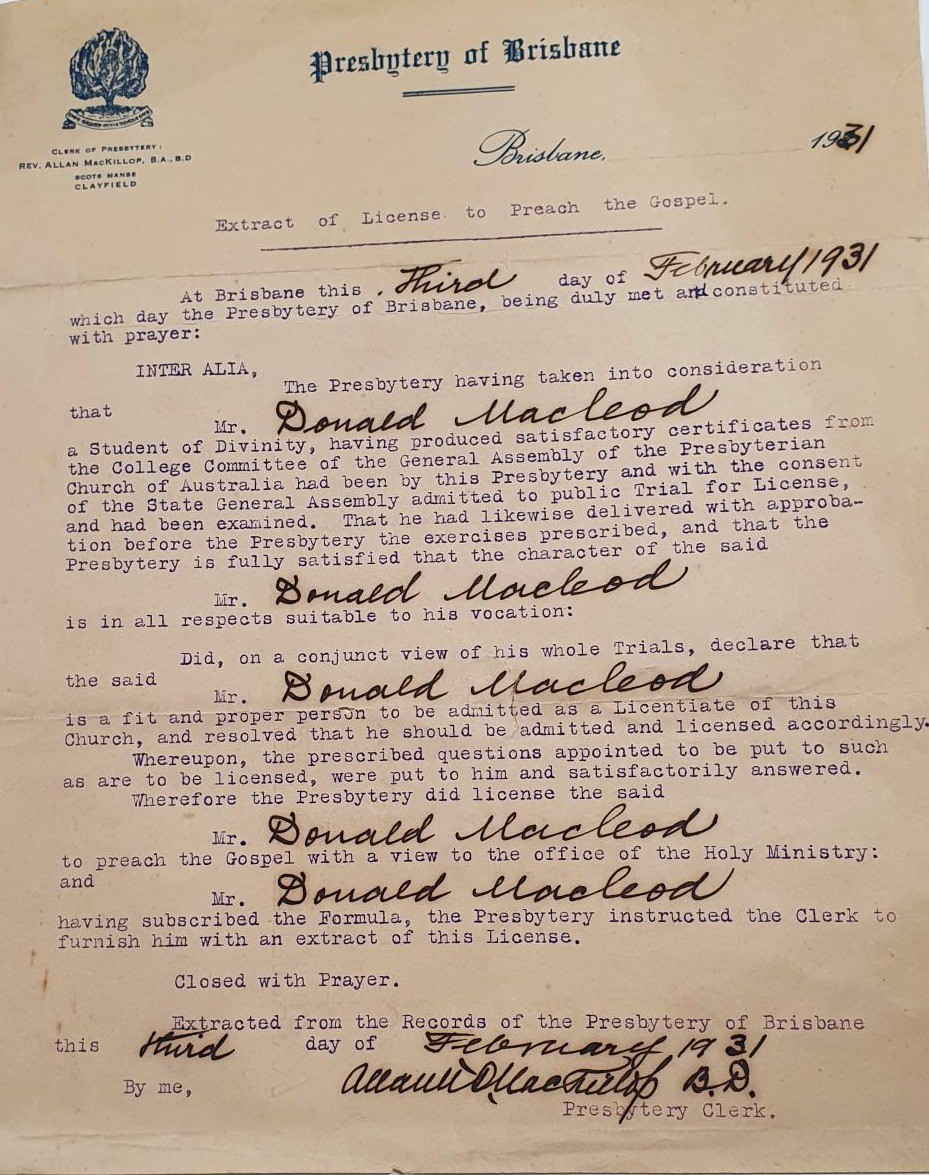 Presbytery of Brisbane
CLERK OF PRESBYTERY:
REV. ALLAN MACKILLOP, B.A., B.D
SCOTS MANSE
CLAYFIELD
Brisbane, 1931
Extract of License to Preach the Gospel.
At Brisbane this Third day of February 1931
which day the Presbytery of Brisbane, being duly met and constituted
with prayer:
INTER ALIA,
The Presbytery having taken into consideration
that
Mr. Donald Macleod
a Student of Divinity, having produced satisfactory certificates from
the College Committee of the General Assembly of the Presbyterian
Church of Australia had been by this Presbytery and with the consent
of the State General Assembly admitted to public Trial for License,
and had been examined. That he had likewise delivered with approba-
tion before the Presbytery the exercises prescribed, and that the
Presbytery is fully satisfied that the character of the said
Mr. Donald Macleod
is in all respects suitable to his vocation:
Did, on a conjunct view of his whole Trials, declare that
the said
Mr. Donald Macleod
is a fit and proper person to be admitted as a Licentiate of this
Church, and resolved that he should be admitted and licensed accordingly.
Whereupon, the prescribed questions appointed to be put to such
as are to be licensed, were put to him and satisfactorily answered.
Wherefore the Presbytery did license the said
Mr. Donald Macleod
to preach the Gospel with a view to the office of the Holy Ministry:
and
Mr. Donald Macleod
having subscribed the Formula, the Presbytery instructed the Clerk to
furnish him with an extract of this License.
Closed with Prayer.
Extracted from the Records of the Presbytery of Brisbane
this third day of February 1931
By me, Allan MacKillop B.D.
Presbytery Clerk.